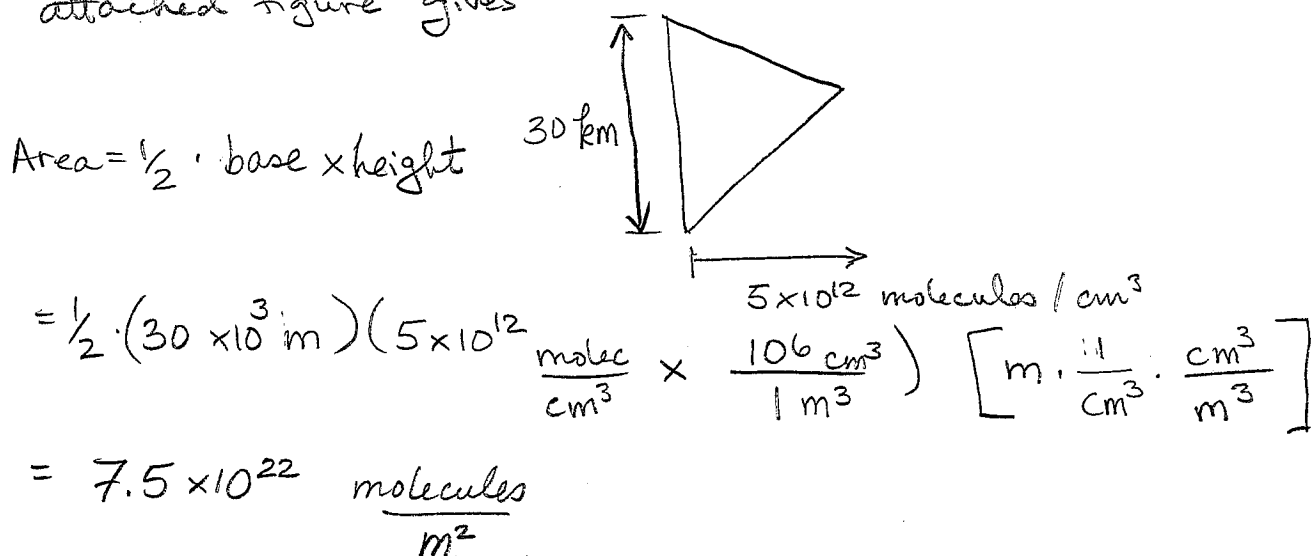 attached figure gives
30 km
Area = 1/2 · base x height
5 x 10¹² molecules / cm³
= 1/2 · (30 x 10³ m) (5 x 10¹² molec/cm³ x 106 cm³/1 m³) [m · 1/cm³ · cm³/m³]
= 7.5 x 10²² molecules/m²